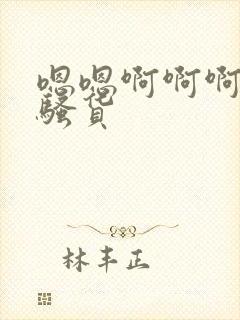 嗯嗯啊啊啊
骚货
林丰正